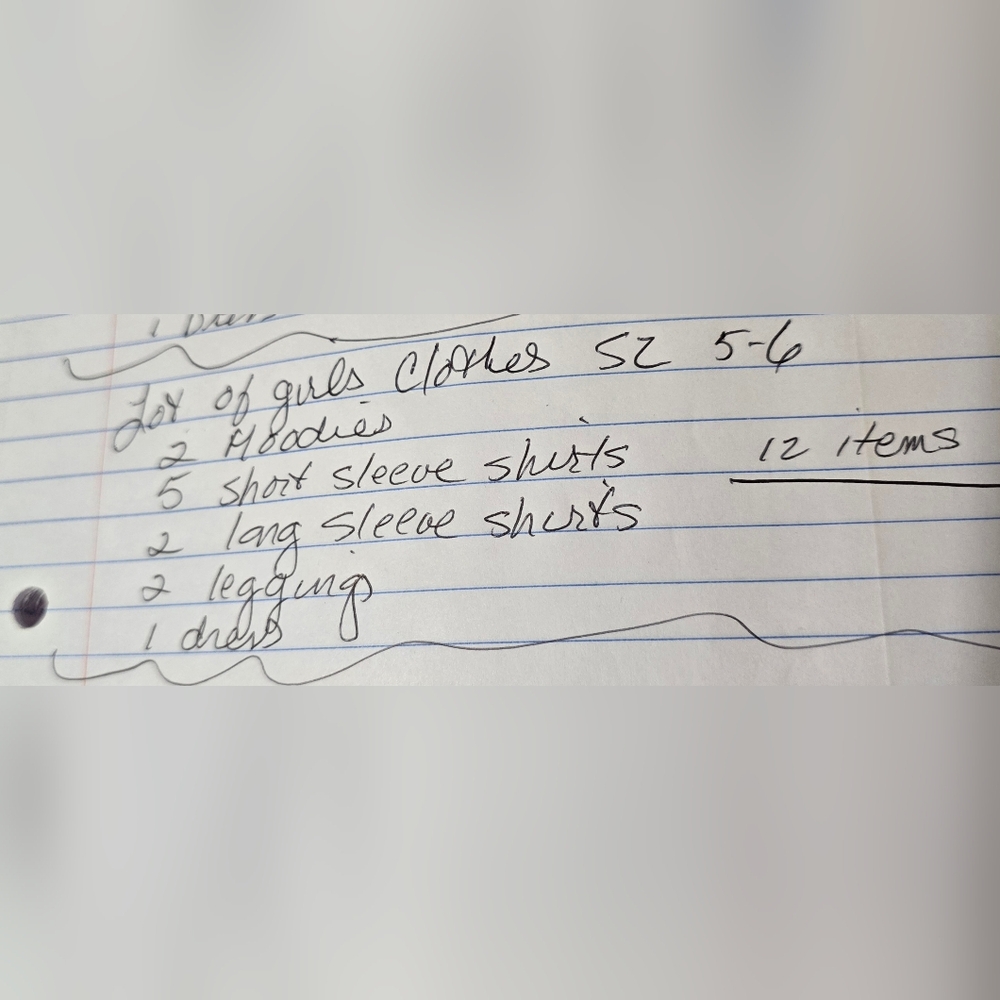 Lot of girls Clothes SZ 5-6
2 Hoodies
5 short sleeve shirts
12 items
2 long sleeve shirts
2 leggings
1 dress